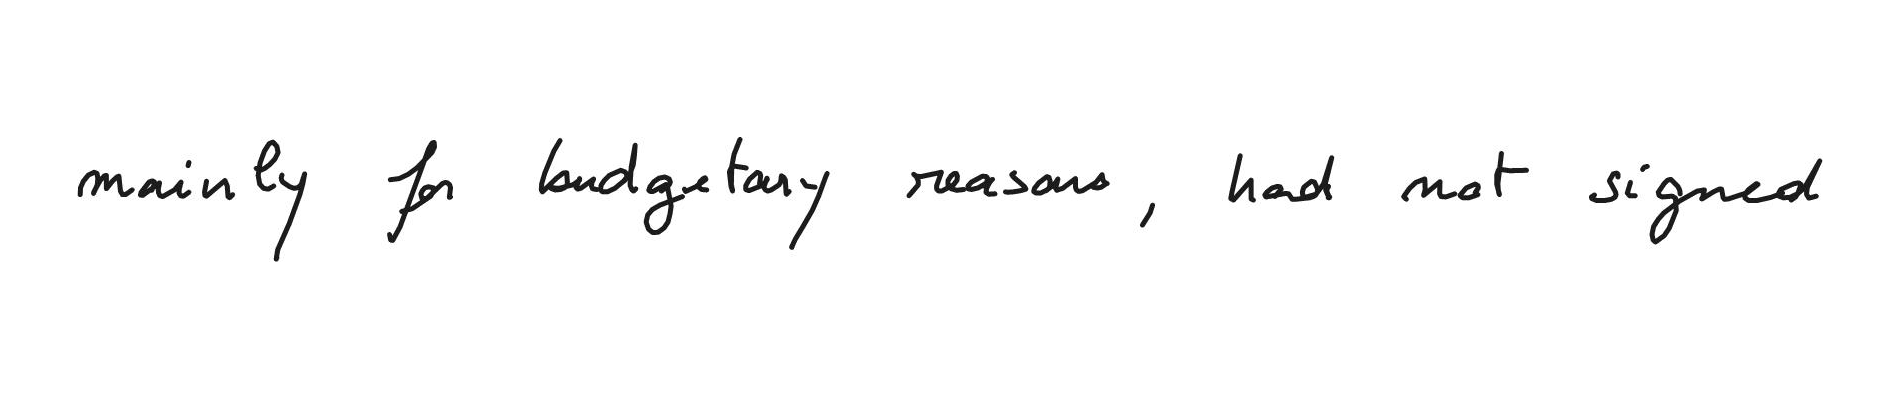 mainly for budgetary reasons, had not signed